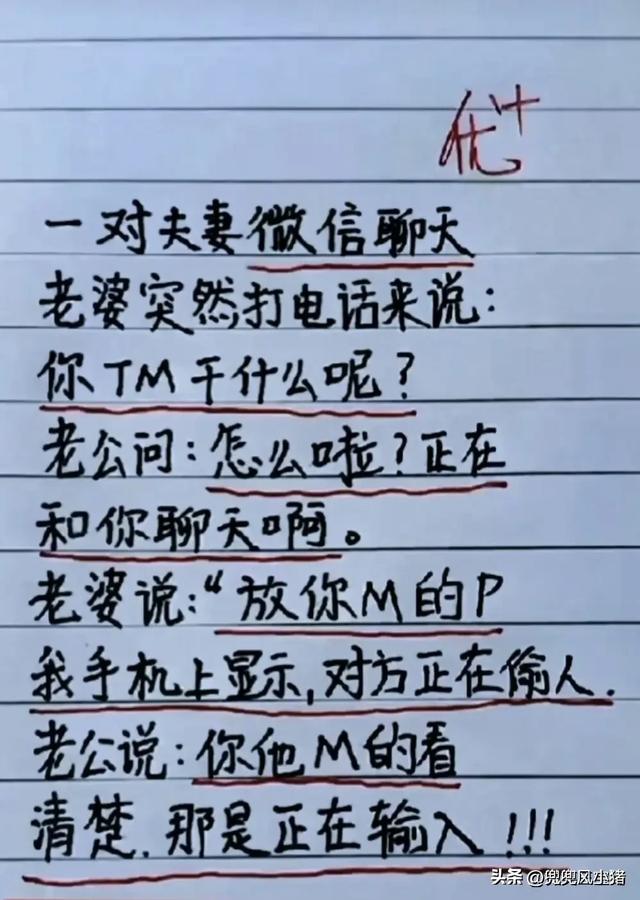 优+
一对夫妻微信聊天
老婆突然打电话来说:
你TM干什么呢?
老公问:怎么啦?正在
和你聊天啊。
老婆说:“放你M的P
我手机上显示,对方正在偷人.
老公说:你他M的看
清楚.那是正在输入!!!
头条 @兜兜风小猪